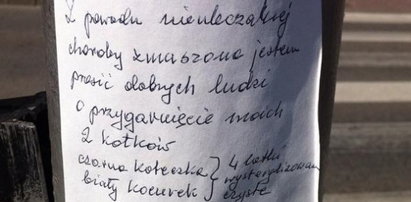 Z powodu nieuleczalnej
choroby zmuszona jestem
prosić dobrych ludzi
o przygarnięcie moich
2 kotków
czarna koteczka } 4 latki
biały kocurek } wysterylizowane
czyste